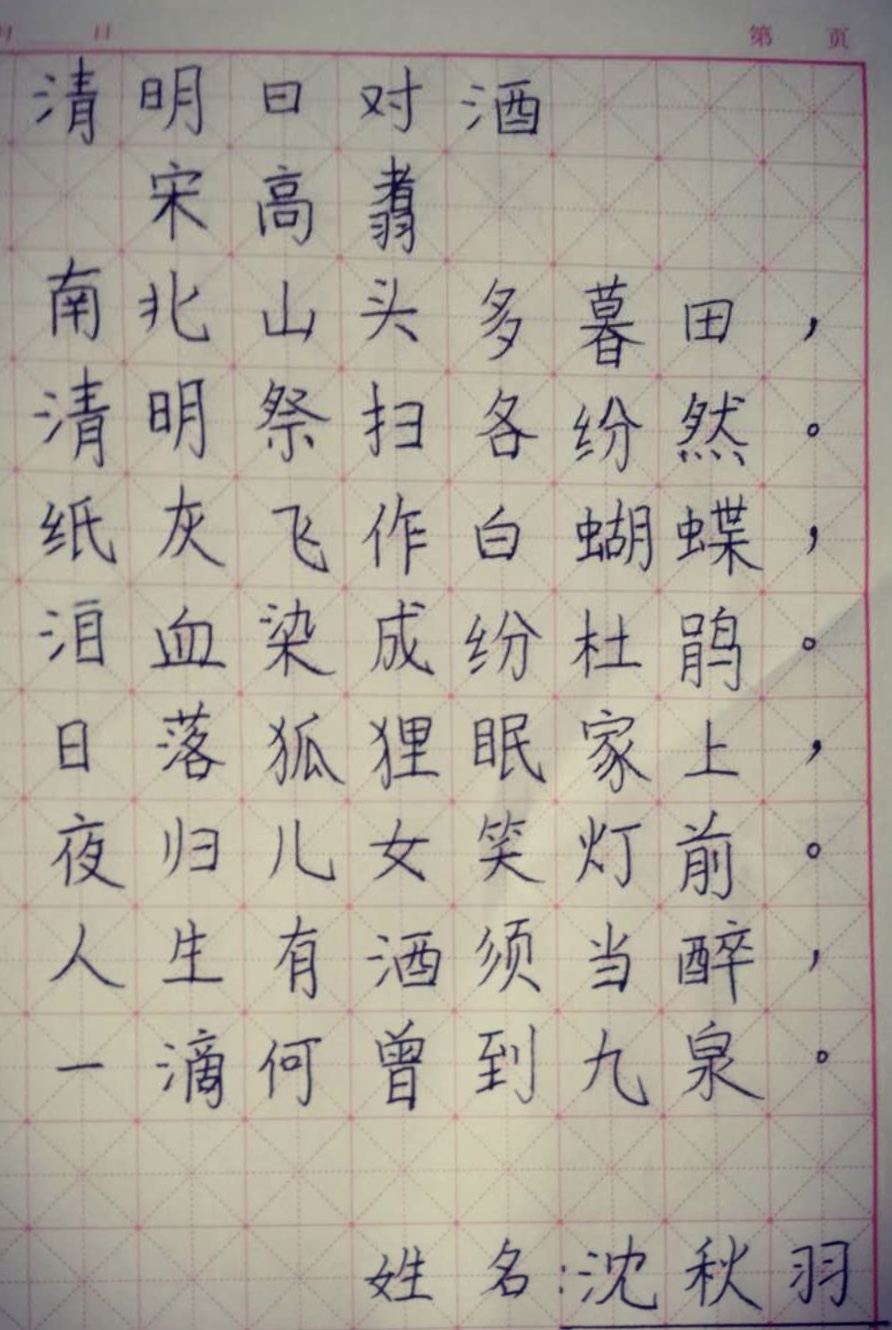 月 日 第 页
清明日对酒
宋高翥
南北山头多暮田，
清明祭扫各纷然。
纸灰飞作白蝴蝶，
泪血染成纷杜鹃。
日落狐狸眠家上，
夜归儿女笑灯前。
人生有酒须当醉，
一滴何曾到九泉。
姓名：沈秋羽